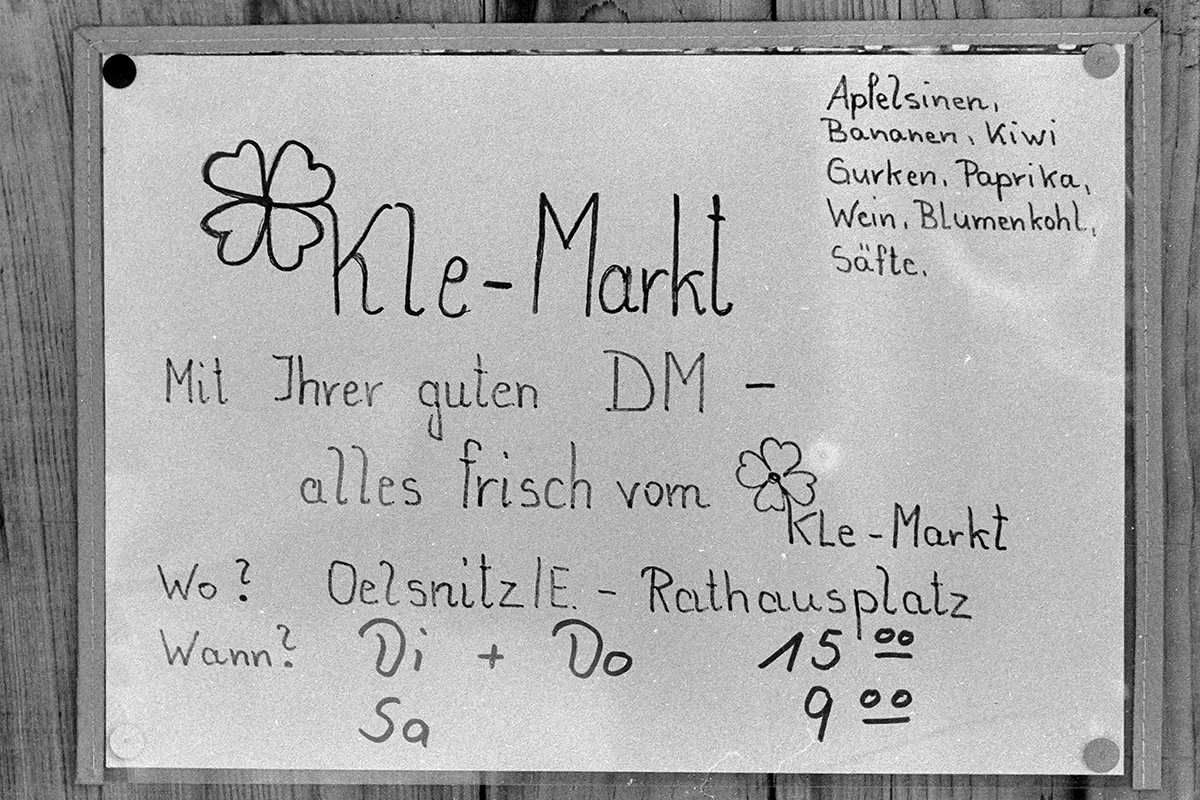 Apfelsinen,
Bananen, Kiwi
Gurken, Paprika,
Wein, Blumenkohl,
Säfte.
Kle-Markt
Mit Ihrer guten DM -
alles frisch vom
Kle-Markt
Wo? Oelsnitz/E. - Rathausplatz
Wann? Di + Do 15 00
Sa 9 00